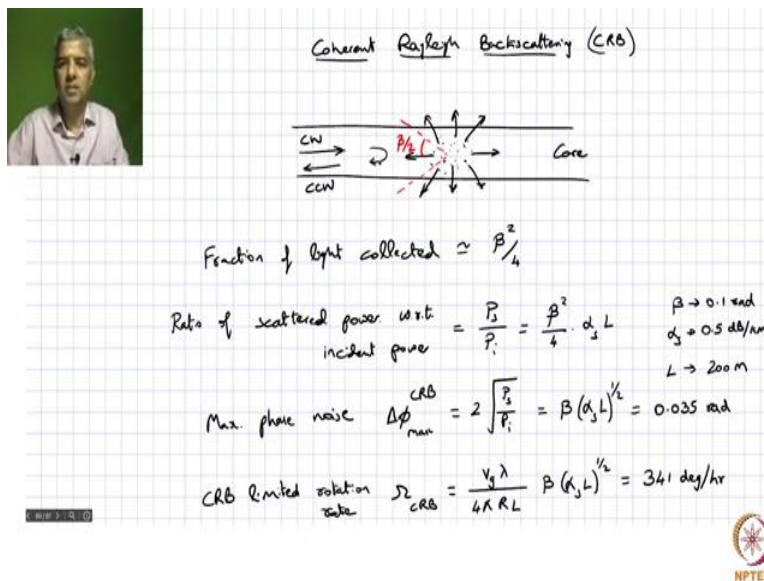 Coherent Rayleigh Backscattering (CRB)
CW
CCW
β/2
Core
Fraction of light collected ≃ β²/4
Ratio of scattered power w.r.t. incident power = P_s/P_i = β²/4 · α_s L
β → 0.1 rad
α_s → 0.5 dB/km
L → 200 m
Max. phase noise Δϕ_max^CRB = 2 √(P_s/P_i) = β (α_s L)^1/2 = 0.035 rad
CRB limited rotation rate Ω_CRB = v_g λ / 4π R L β (α_s L)^1/2 = 341 deg/hr
NPTEL